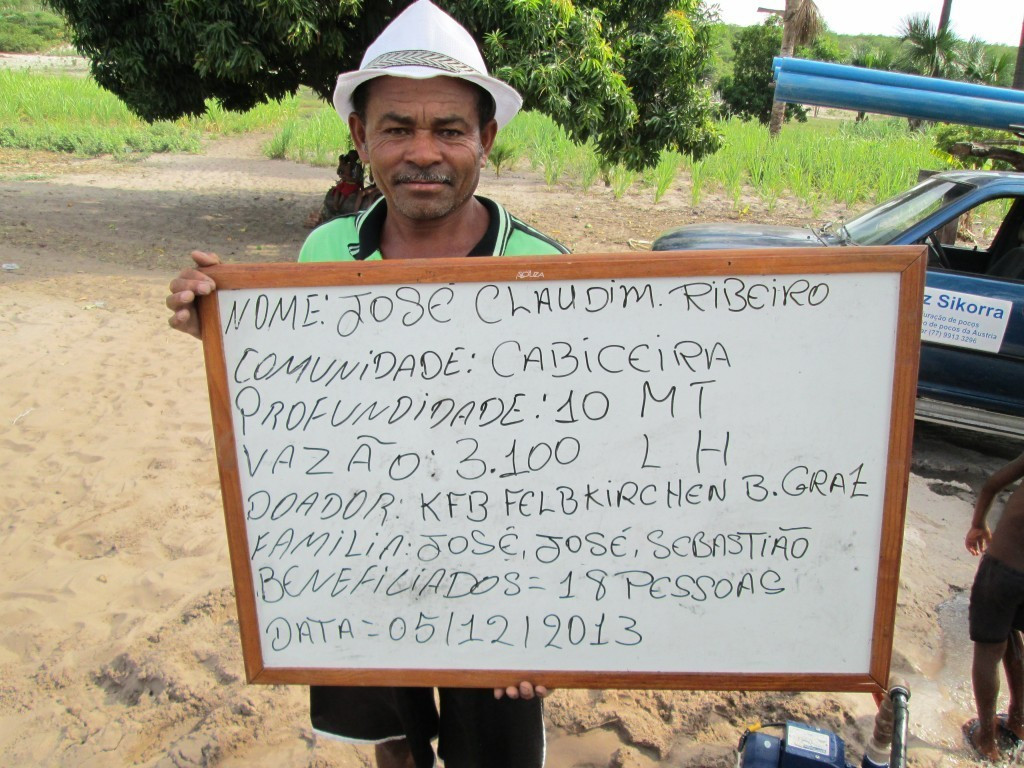 SOUZA
NOME: JOSÉ CLAUDIM. RIBEIRO
COMUNIDADE: CABICEIRA
PROFUNDIDADE: 10 MT
VAZÃO: 3.100 L H
DOADOR: KFB FELBKIRCHEN B. GRAZ
FAMILIA: JOSÉ, JOSÉ, SEBASTIÃO
BENEFILIADOS = 18 PESSOAS
DATA = 05/12/2013
z Sikorra
uração de poços
o de poços da Áustria
(77) 9913 3296